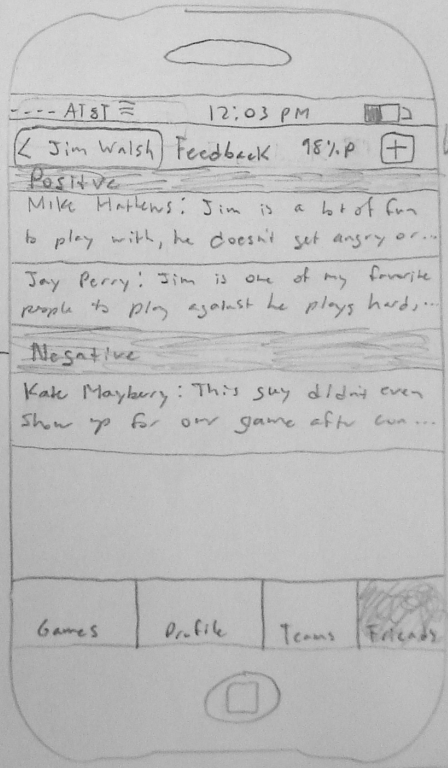 AT&T 12:03 PM
< Jim Walsh Feedback 98% P +
Positve
Mike Mathews: Jim is a lot of fun
to play with, he doesn't get angry or...
Jay Perry: Jim is one of my favorite
people to play against he plays hard,...
Negative
Kate Maybury: This guy didn't even
show up for our game after
Games Profile Teams Friends